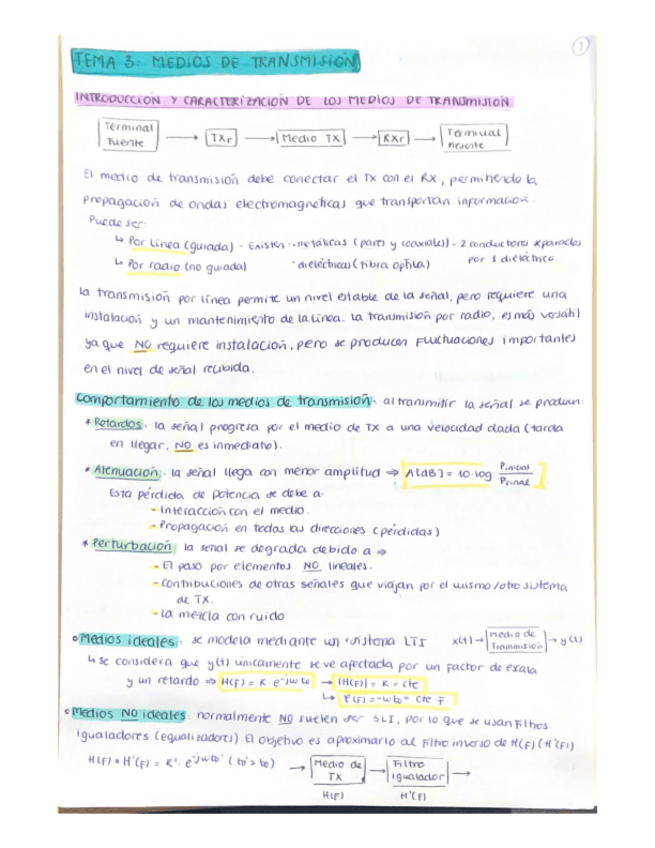 1
TEMA 3: MEDIOS DE TRANSMISIÓN
INTRODUCCIÓN Y CARACTERIZACIÓN DE LOS MEDIOS DE TRANSMISIÓN
Terminal Fuente → TXr → Medio TX → RXr → Terminal
El medio de transmisión debe conectar el TX con el RX, permitiendo la
propagación de ondas electromagnéticas que transportan información.
Puede ser:
↳ Por línea (guiada) - Existen: · metálicas (pares y coaxiales) - 2 conductores separados
↳ Por radio (no guiada) · dieléctricas (fibra óptica) por 1 dieléctrico.
La transmisión por línea permite un nivel estable de la señal, pero requiere una
instalación y un mantenimiento de la línea. La transmisión por radio, es más versátil
ya que NO requiere instalación, pero se producen fluctuaciones importantes
en el nivel de señal recibida.
Comportamiento de los medios de transmisión: al transmitir la señal se producen:
* Retardos: la señal progresa por el medio de TX a una velocidad dada (tarda
en llegar, NO es inmediato).
* Atenuación: la señal llega con menor amplitud ⇒ A[dB] = 10·log Pinicial / Pfinal
Esta pérdida de potencia se debe a:
- Interacción con el medio.
- Propagación en todas las direcciones (pérdidas)
* Perturbación: la señal se degrada debido a ⇒
- El paso por elementos NO lineales.
- Contribuciones de otras señales que viajan por el mismo/otro sistema
de TX.
- La mezcla con ruido
o Medios ideales: se modela mediante un sistema LTI x(t) → Medio de Transmisión → y(t)
↳ Se considera que y(t) únicamente se ve afectada por un factor de escala
y un retardo ⇒ H(F) = K·e^-jwto → |H(F)| = K = cte
↳ φ(F) = -wto = cte·F
o Medios NO ideales: normalmente NO suelen ser SLI, por lo que se usan filtros
igualadores (equalizadores) El objetivo es aproximarlo al filtro inverso de H(F) (H'(F))
H(F)·H'(F) = K'·e^-jwto' (to' > to) → Medio de TX → Filtro igualador →
H(F) H'(F)